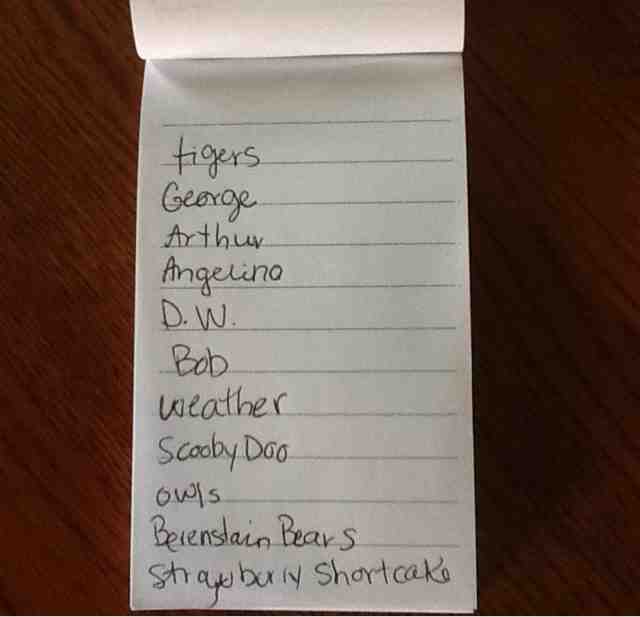 tigers
George
Arthur
Angelina
D.W.
Bob
weather
Scooby Doo
owls
Berenstain Bears
Strawburry Shortcake